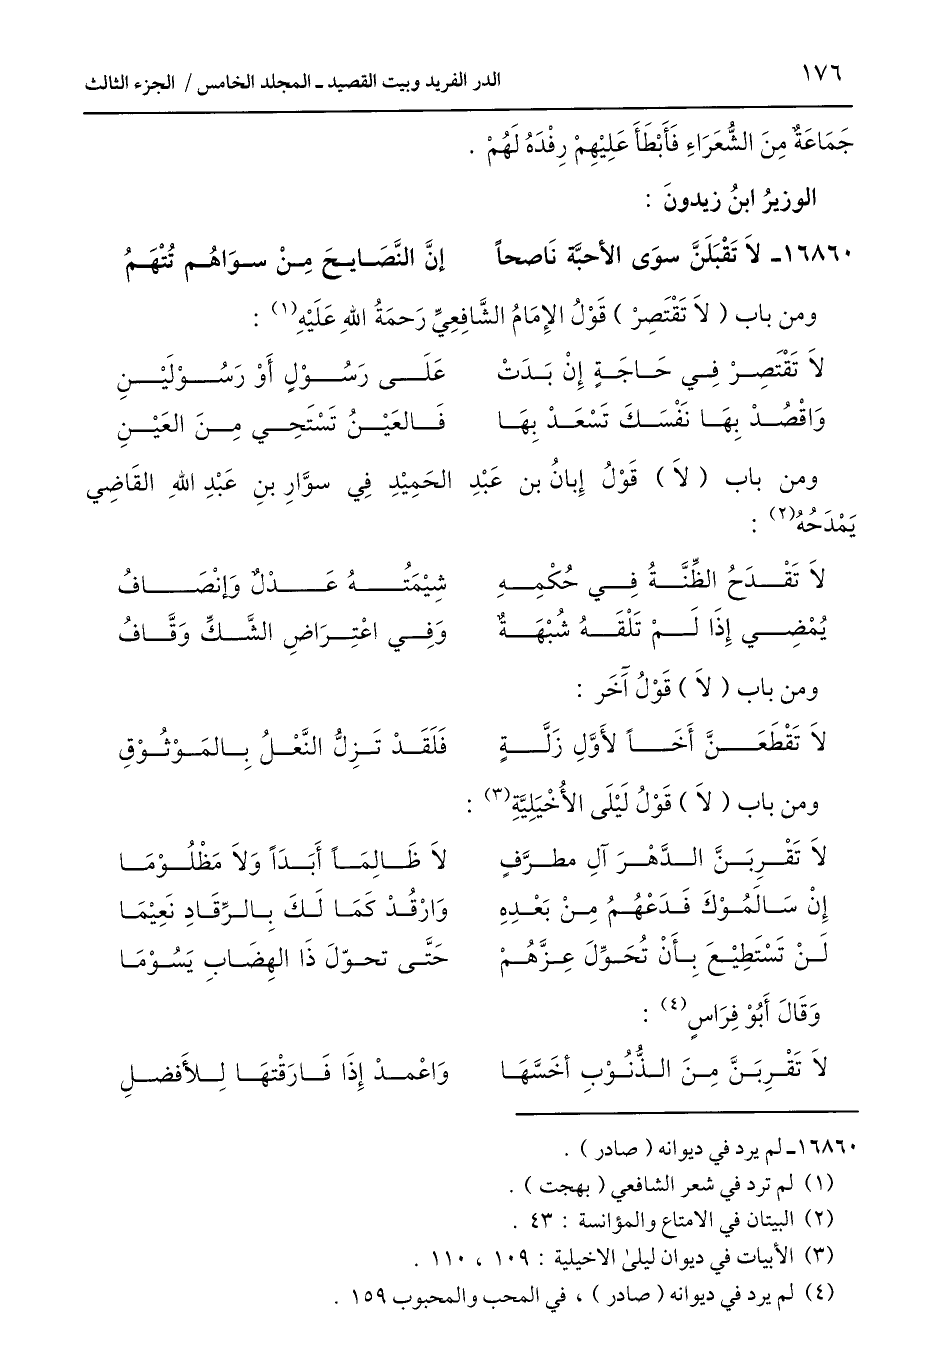 ١٧٦
الدر الفريد وبيت القصيد ـ المجلد الخامس / الجزء الثالث
جَمَاعَةٌ مِنَ الشُّعَرَاءِ فَأَبْطَأَ عَلَيهِمْ رِفْدَهُ لَهُمْ .
الوزيرُ ابنُ زيدونَ :
١٦٨٦٠ـ لاَ تَقْبَلَنَّ سوَى الأحبَّة نَاصحاً إنَّ النَّصَايحَ مِنْ سوَاهُم تُتْهَمُ
ومن باب ( لاَ تَقْتَصِرْ ) قَوْلُ الإِمَامُ الشَّافِعِيِّ رَحمَةُ اللهِ عَلَيْهِ(١) :
لاَ تَقْتَصِرْ فِي حَاجَةٍ إنْ بَدَتْ عَلَى رَسُوْلٍ أوْ رَسُوْلَيْنِ
وَاقْصُدْ بِهَا نَفْسَكَ تَسْعَدْ بِهَا فَالعَيْنُ تَسْتَحِي مِنَ العَيْنِ
ومن باب ( لاَ ) قَوْلُ إبانُ بن عَبْدِ الحَمِيْدِ فِي سوَّارِ بنِ عَبْدِ اللهِ القَاضِي
يَمْدَحُهُ(٢) :
لاَ تَقْدَحُ الظِّنَّةُ فِي حُكْمِهِ شِيْمَتُهُ عَدْلٌ وَإِنْصَافُ
يُمْضِي إِذَا لَمْ تَلْقَهُ شُبْهَةٌ وَفِي اعْتِرَاضِ الشَّكِّ وَقَّافُ
ومن باب ( لاَ ) قَوْلُ آخَر :
لاَ تَقْطَعَنَّ أخَاً لأوَّلِ زَلَّةٍ فَلَقَدْ تَزِلُّ النَّعْلُ بِالمَوْثُوْقِ
ومن باب ( لاَ ) قَوْلُ لَيْلَى الأَخْيَلِيَّةِ(٣) :
لاَ تَقْرِبَنَّ الدَّهْرَ آلِ مطرَّفٍ لاَ ظَالِمَاً أَبَدَاً وَلاَ مَظْلُوْمَا
إنْ سَالَمُوْكَ فَدَعْهُمُ مِنْ بَعْدِهِ وَارْقُدْ كَمَا لَكَ بِالرِّقَادِ نَعِيْمَا
لَنْ تَسْتَطِيْعَ بِأَنْ تُحَوِّلَ عِزَّهُمْ حَتَّى تحوّلَ ذَا الهِضَابِ يَسُوْمَا
وَقَالَ أَبُوْ فِرَاسٍ(٤) :
لاَ تَقْرِبَنَّ مِنَ الذُّنُوْبِ أَخَسَّهَا وَاعْمدْ إِذَا فَارَقْتَهَا لِلأَفضلِ
١٦٨٦٠ـ لم يرد في ديوانه ( صادر ) .
(١) لم ترد في شعر الشافعي ( بهجت ) .
(٢) البيتان في الامتاع والمؤانسة : ٤٣ .
(٣) الأبيات في ديوان ليلىٰ الاخيلية : ١٠٩ ، ١١٠ .
(٤) لم يرد في ديوانه ( صادر ) ، في المحب والمحبوب ١٥٩ .